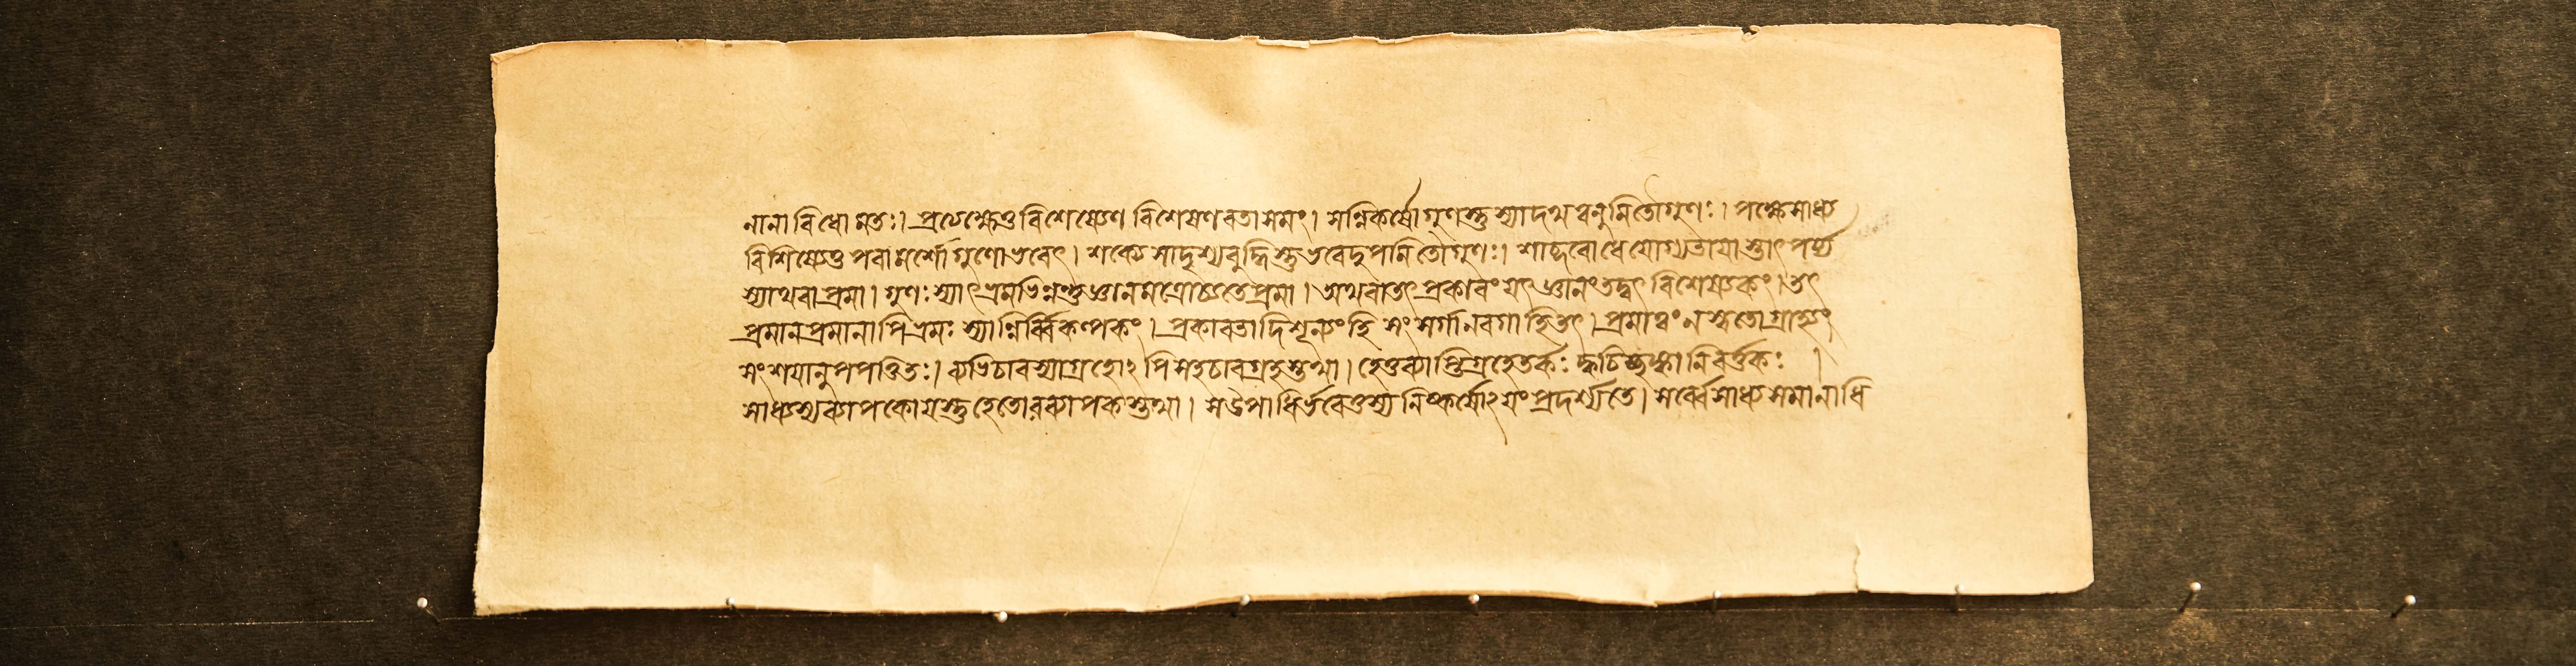 নানাবিধো মতঃ। প্রত্যক্ষেতু বিশেষ্যেণ বিশেষণবতা সমং। সন্নিকর্ষো গুণস্তু স্যাদথত্বনুমিতৌ গুণঃ। পক্ষে সাধ্য
বিশিষ্টেতু পরামর্শো গুণো ভবেৎ। শক্যে সাদৃশ্যবুদ্ধিস্তু ভবেদুপমিতৌ গুণঃ। শাব্দবোধে যোগ্যতায়াস্তাৎপর্য্য
স্যাথবা প্রমা। গুণঃ স্যাৎ ভ্রমভিন্নন্তু জ্ঞানমত্রোচ্যতে প্রমা। অথবা তৎপ্রকারং যৎ জ্ঞানং তদ্বৎ বিশেষ্যকং। তৎ
প্রমা ন প্রমা নাপি ভ্রমঃ স্যান্নির্ব্বিকল্পকং। প্রকারতাদিশূন্যং হি সংসর্গানবগাহি তৎ। প্রমাত্বং ন স্বতো গ্রাহ্যং
সংশয়ানুপপত্তিতঃ। ব্যভিচারস্যাগ্রহোঽপি সহচারগ্রহস্তথা। হেতুব্যাপ্তিগ্রহে তর্কঃ ক্বচিচ্ছঙ্কানিবর্ত্তকঃ।
সাধ্যস্য ব্যাপকো যস্তু হেতোরব্যাপকস্তথা। স উপাধির্ভবেত্তস্য নিষ্কর্ষোঽয়ং প্রদর্শ্যতে। সর্ব্বে সাধ্যসমানাধি